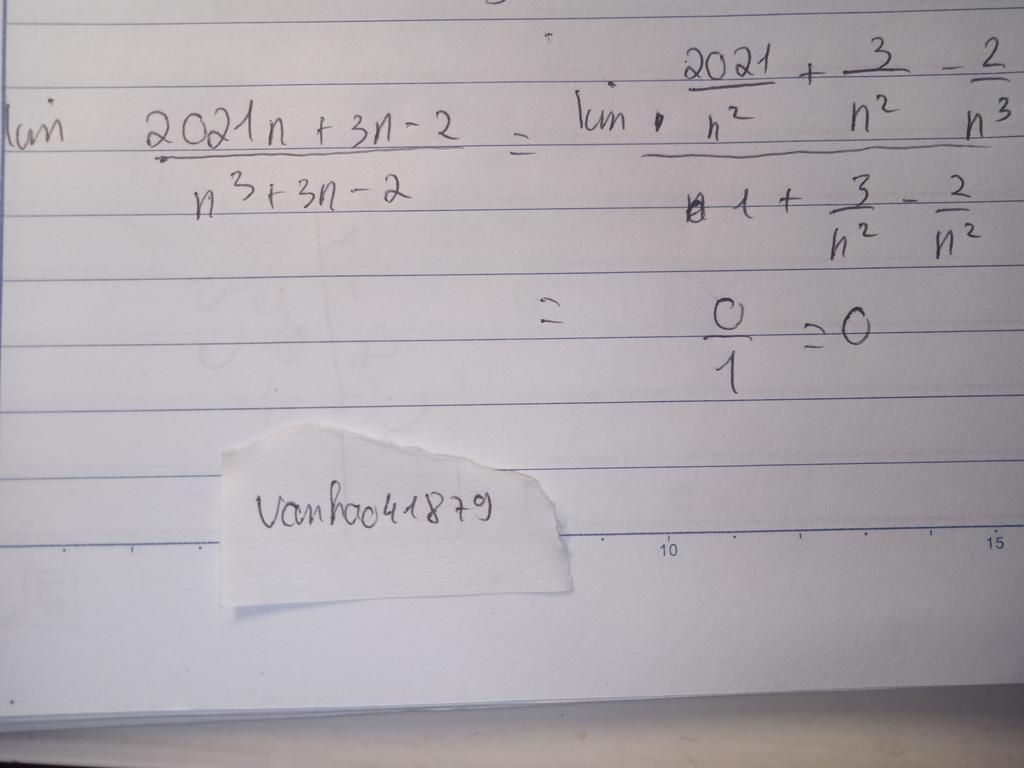 lim (2021n + 3n - 2)/(n³ + 3n - 2) = lim (2021/n² + 3/n² - 2/n³)/(1 + 3/n² - 2/n²)
= 0/1 = 0
vanhao41879
10 15